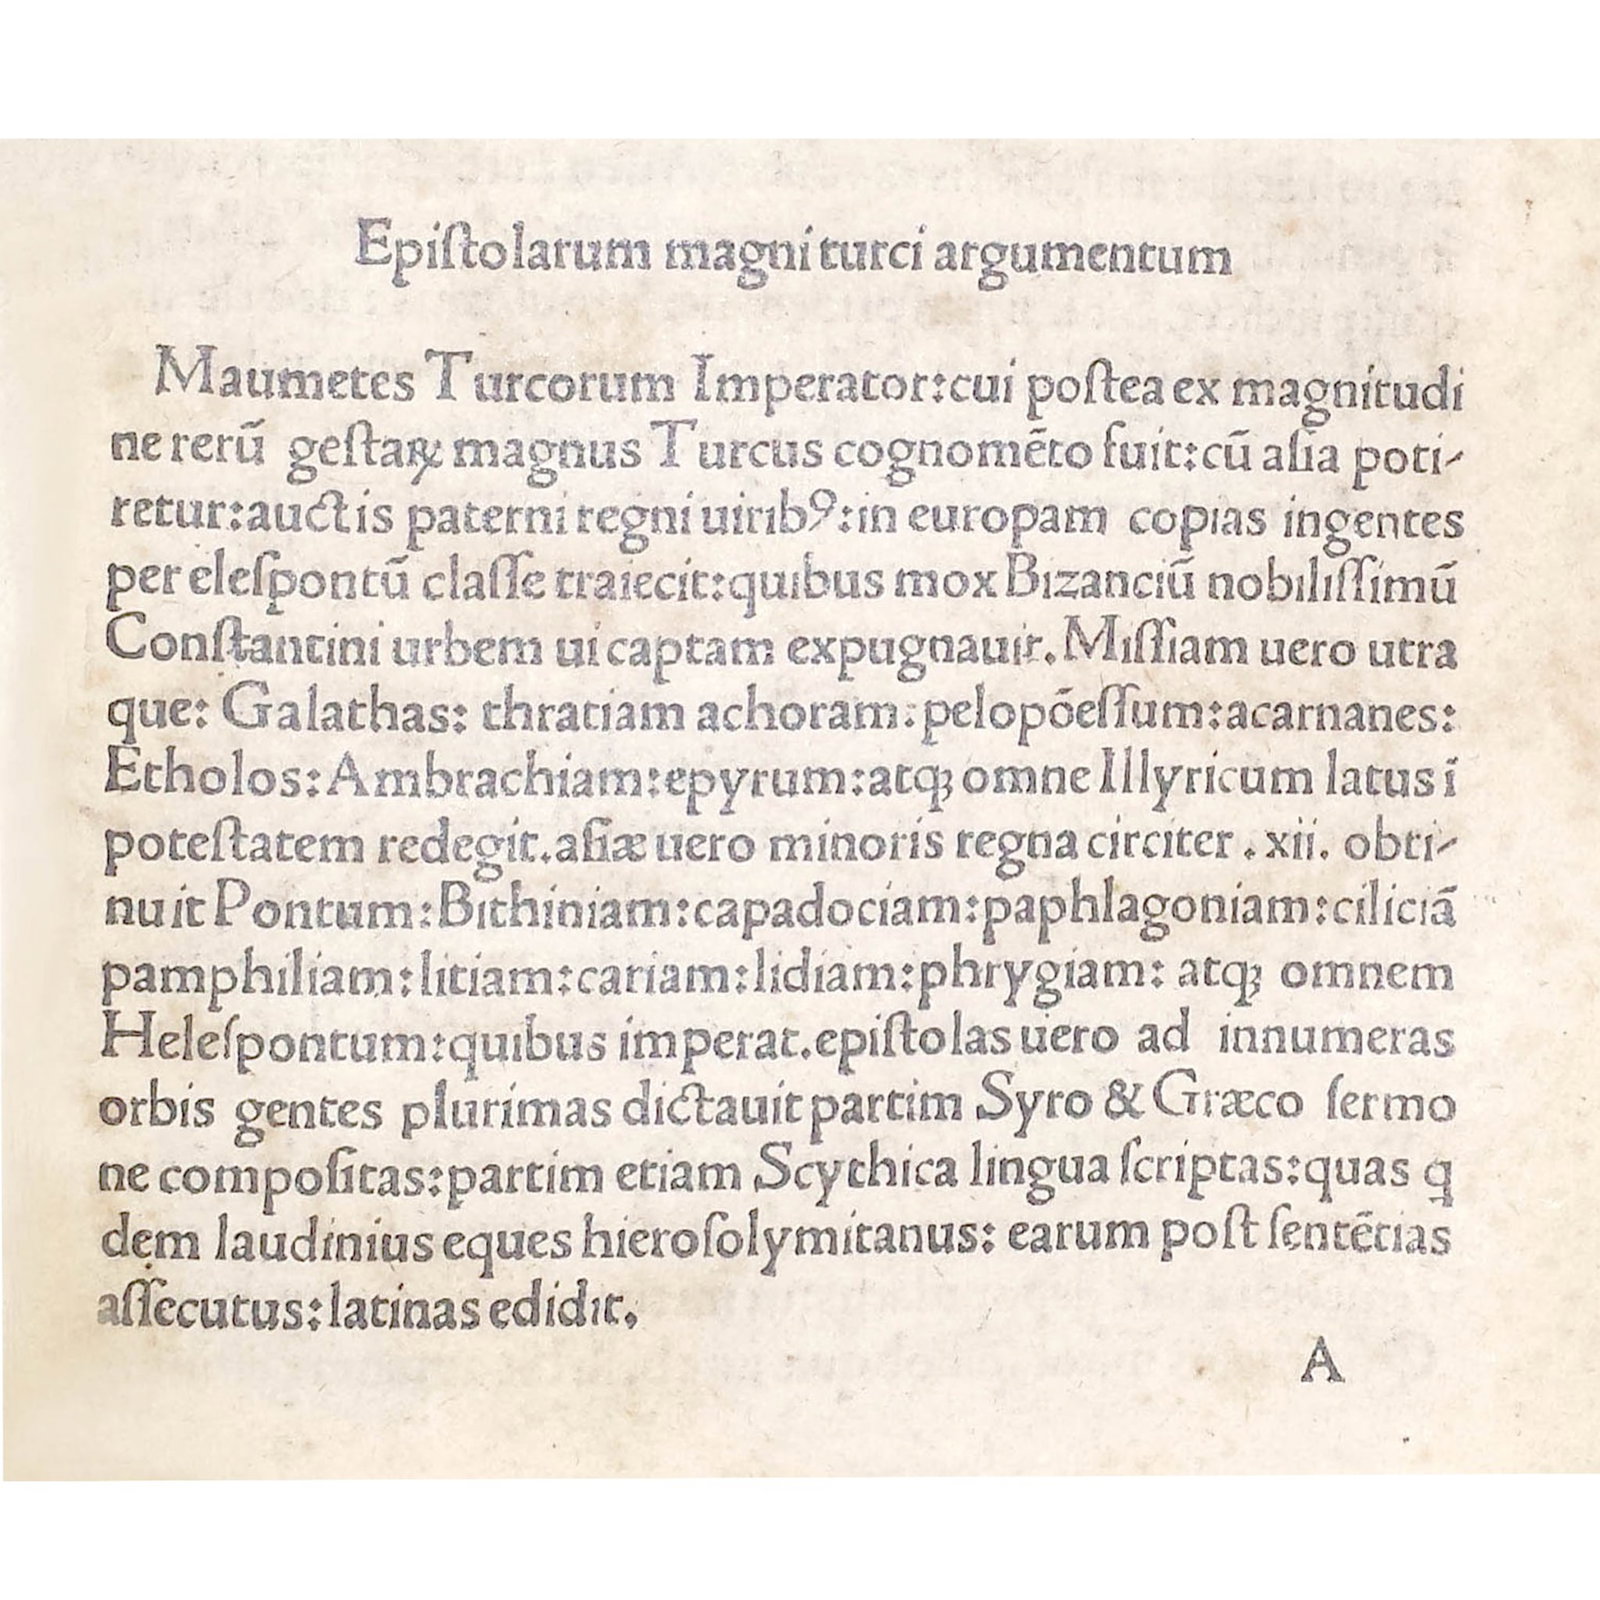 Epiſtolarum magni turci argumentum
Maumetes Turcorum Imperator:cui poſtea ex magnitudi
ne rerū geſtaꝝ magnus Turcus cognomēto fuit:cū aſia poti-
retur:auctis paterni regni uiribꝰ:in europam copias ingentes
per eleſpontū claſſe traiecit:quibus mox Bizanciū nobiliſſimū
Conſtantini urbem ui captam expugnauit.Miſſiam uero utra
que: Galathas: thratiam achoram:pelopōeſſum:acarnanes:
Etholos:Ambrachiam:epyrum:atqꝫ omne Illyricum latus ī
poteſtatem redegit.aſiæ uero minoris regna circiter .xii. obti-
nuit Pontum:Bithiniam:capadociam:paphlagoniam:ciliciā
pamphiliam:litiam:cariam:lidiam:phrygiam: atqꝫ omnem
Heleſpontum:quibus imperat.epiſtolas uero ad innumeras
orbis gentes plurimas dictauit partim Syro & Græco ſermo
ne compoſitas:partim etiam Scythica lingua ſcriptas:quas q
dem laudinius eques hieroſolymitanus: earum poſt ſentētias
aſſecutus:latinas edidit.
A